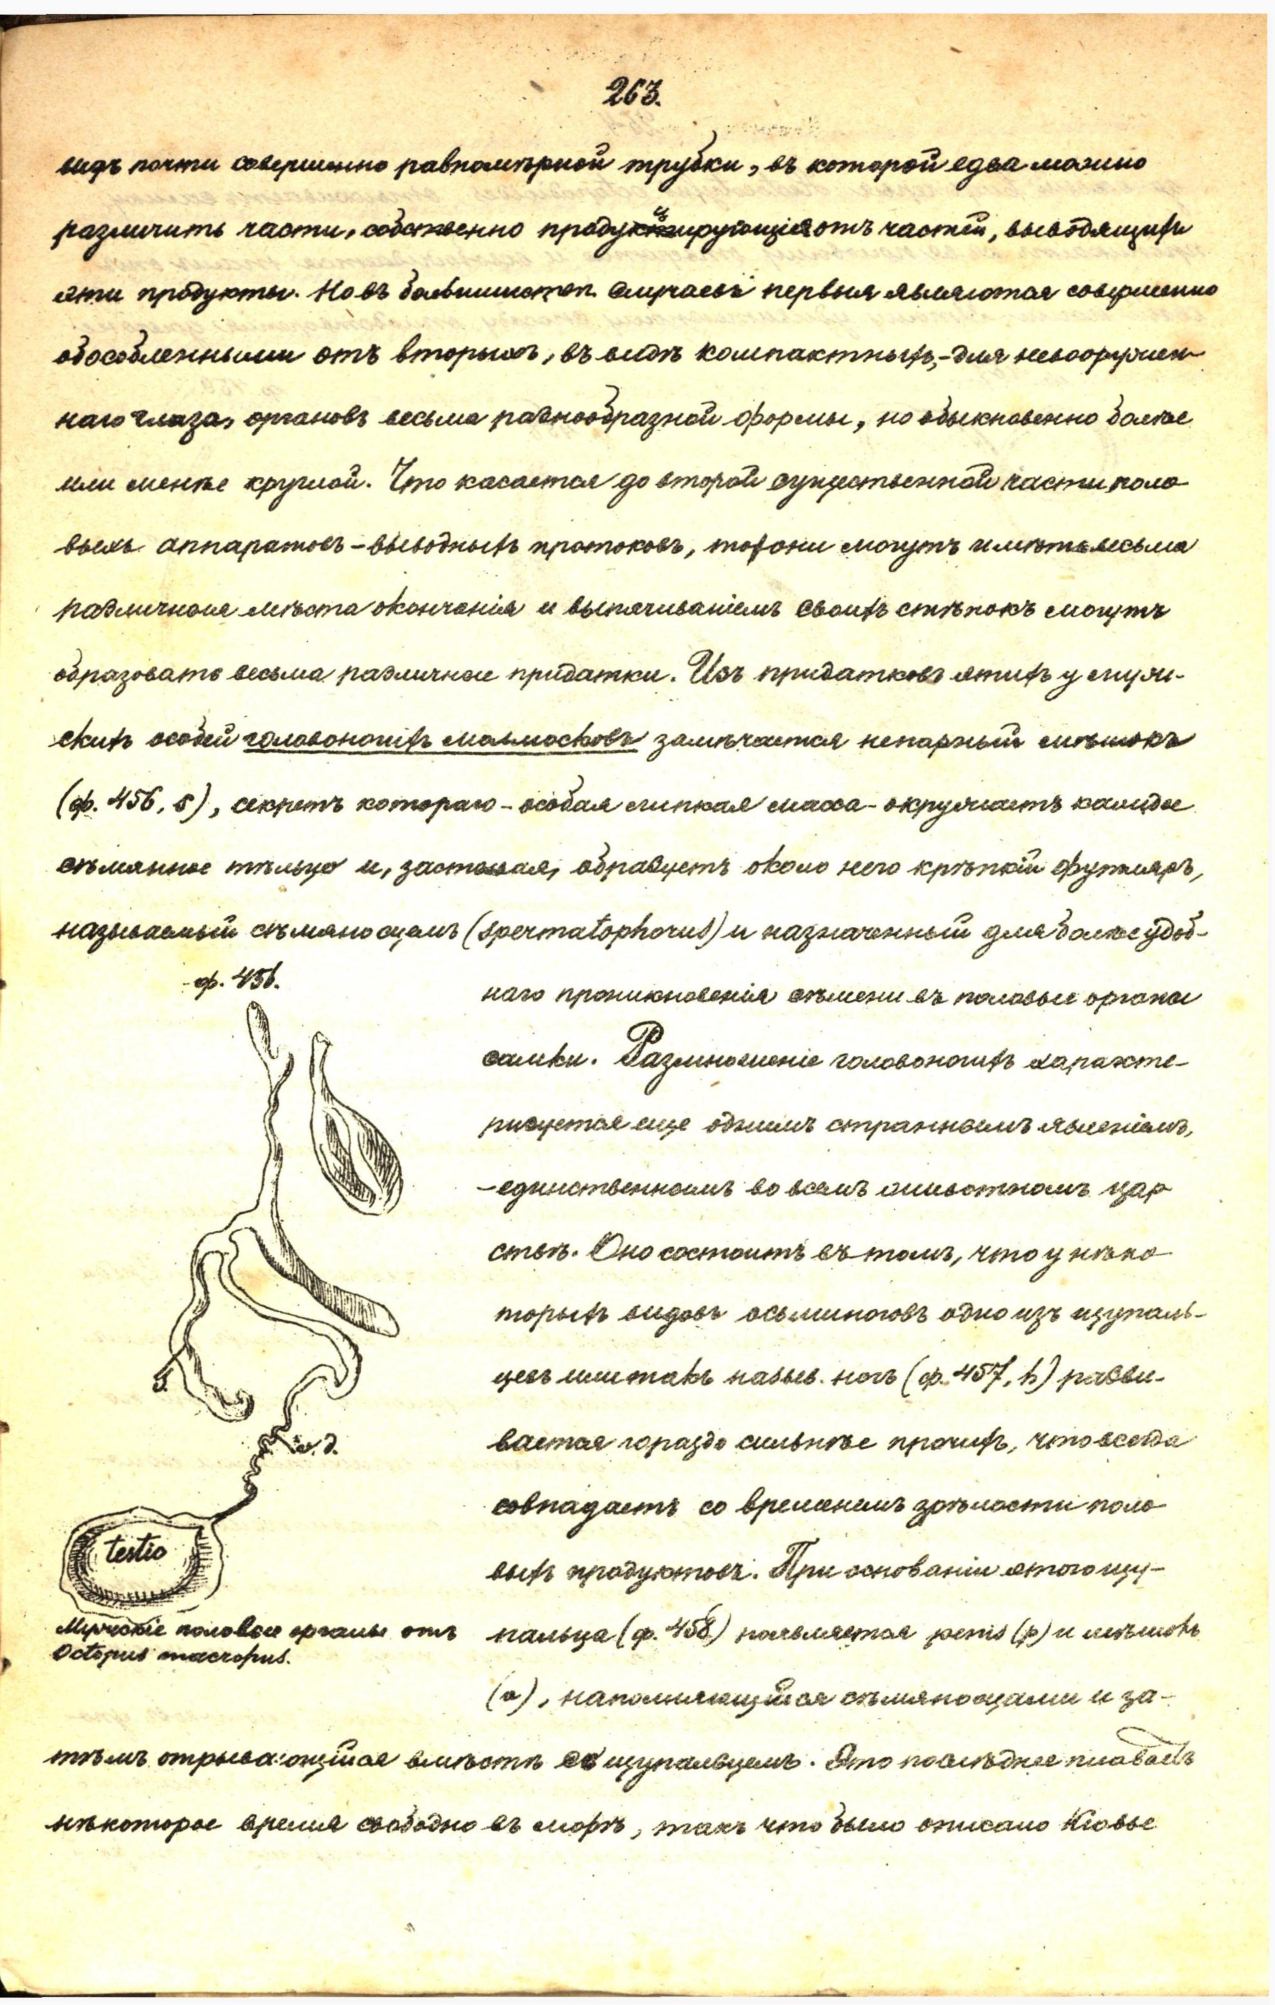 263.
видѣ почти совершенно равномѣрной трубки, въ которой едва можно
различить части, собственно продуцирующія отъ частей, выводящихъ
эти продукты. Но въ большинствѣ случаевъ первыя являются совершенно
обособленными отъ вторыхъ, въ видѣ компактныхъ, - для невооружен-
наго глаза, органовъ весьма разнообразной формы, но обыкновенно болѣе
или менѣе круглой. Что касается до второй существенной части поло-
выхъ аппаратовъ - выводныхъ протоковъ, то они могутъ имѣть весьма
различныя мѣста окончанія и выпячиваніемъ своихъ стѣнокъ могутъ
образовать весьма различные придатки. Изъ придатковъ этихъ у муж-
скихъ особей головоногихъ моллюсковъ замѣчается непарный мѣшокъ
(ф. 456, s), секретъ котораго - особая липкая масса - окружаетъ каждое
сѣмянное тѣльце и, застывая, образуетъ около него крѣпкій футляръ,
называемый сѣмяносцемъ (spermatophorus) и назначенный для болѣе удоб-
ф. 456.
наго проникновенія сѣмени въ половые органы
самки. Размноженіе головоногихъ характе-
ризуется еще однимъ страннымъ явленіемъ,
- единственнымъ во всемъ животномъ цар
ствѣ. Оно состоитъ въ томъ, что у нѣко
торыхъ видовъ осьминоговъ одно изъ щупаль-
цевъ или такъ назыв. ногъ (ф. 457, h) разви-
вается гораздо сильнѣе прочихъ, что всегда
совпадаетъ со временемъ зрѣлости поло
выхъ продуктовъ. При основаніи этого щу-
пальца (ф. 458) появляется penis (p) и мѣшокъ
(a), наполняющійся сѣмяносцами и за-
s.
v. d.
testis
Мужскіе половые органы отъ
Octopus macropus.
тѣмъ отрывающійся вмѣстѣ съ щупальцемъ. Это послѣднее плаваетъ
нѣкоторое время свободно въ морѣ, такъ что было описано Кювье